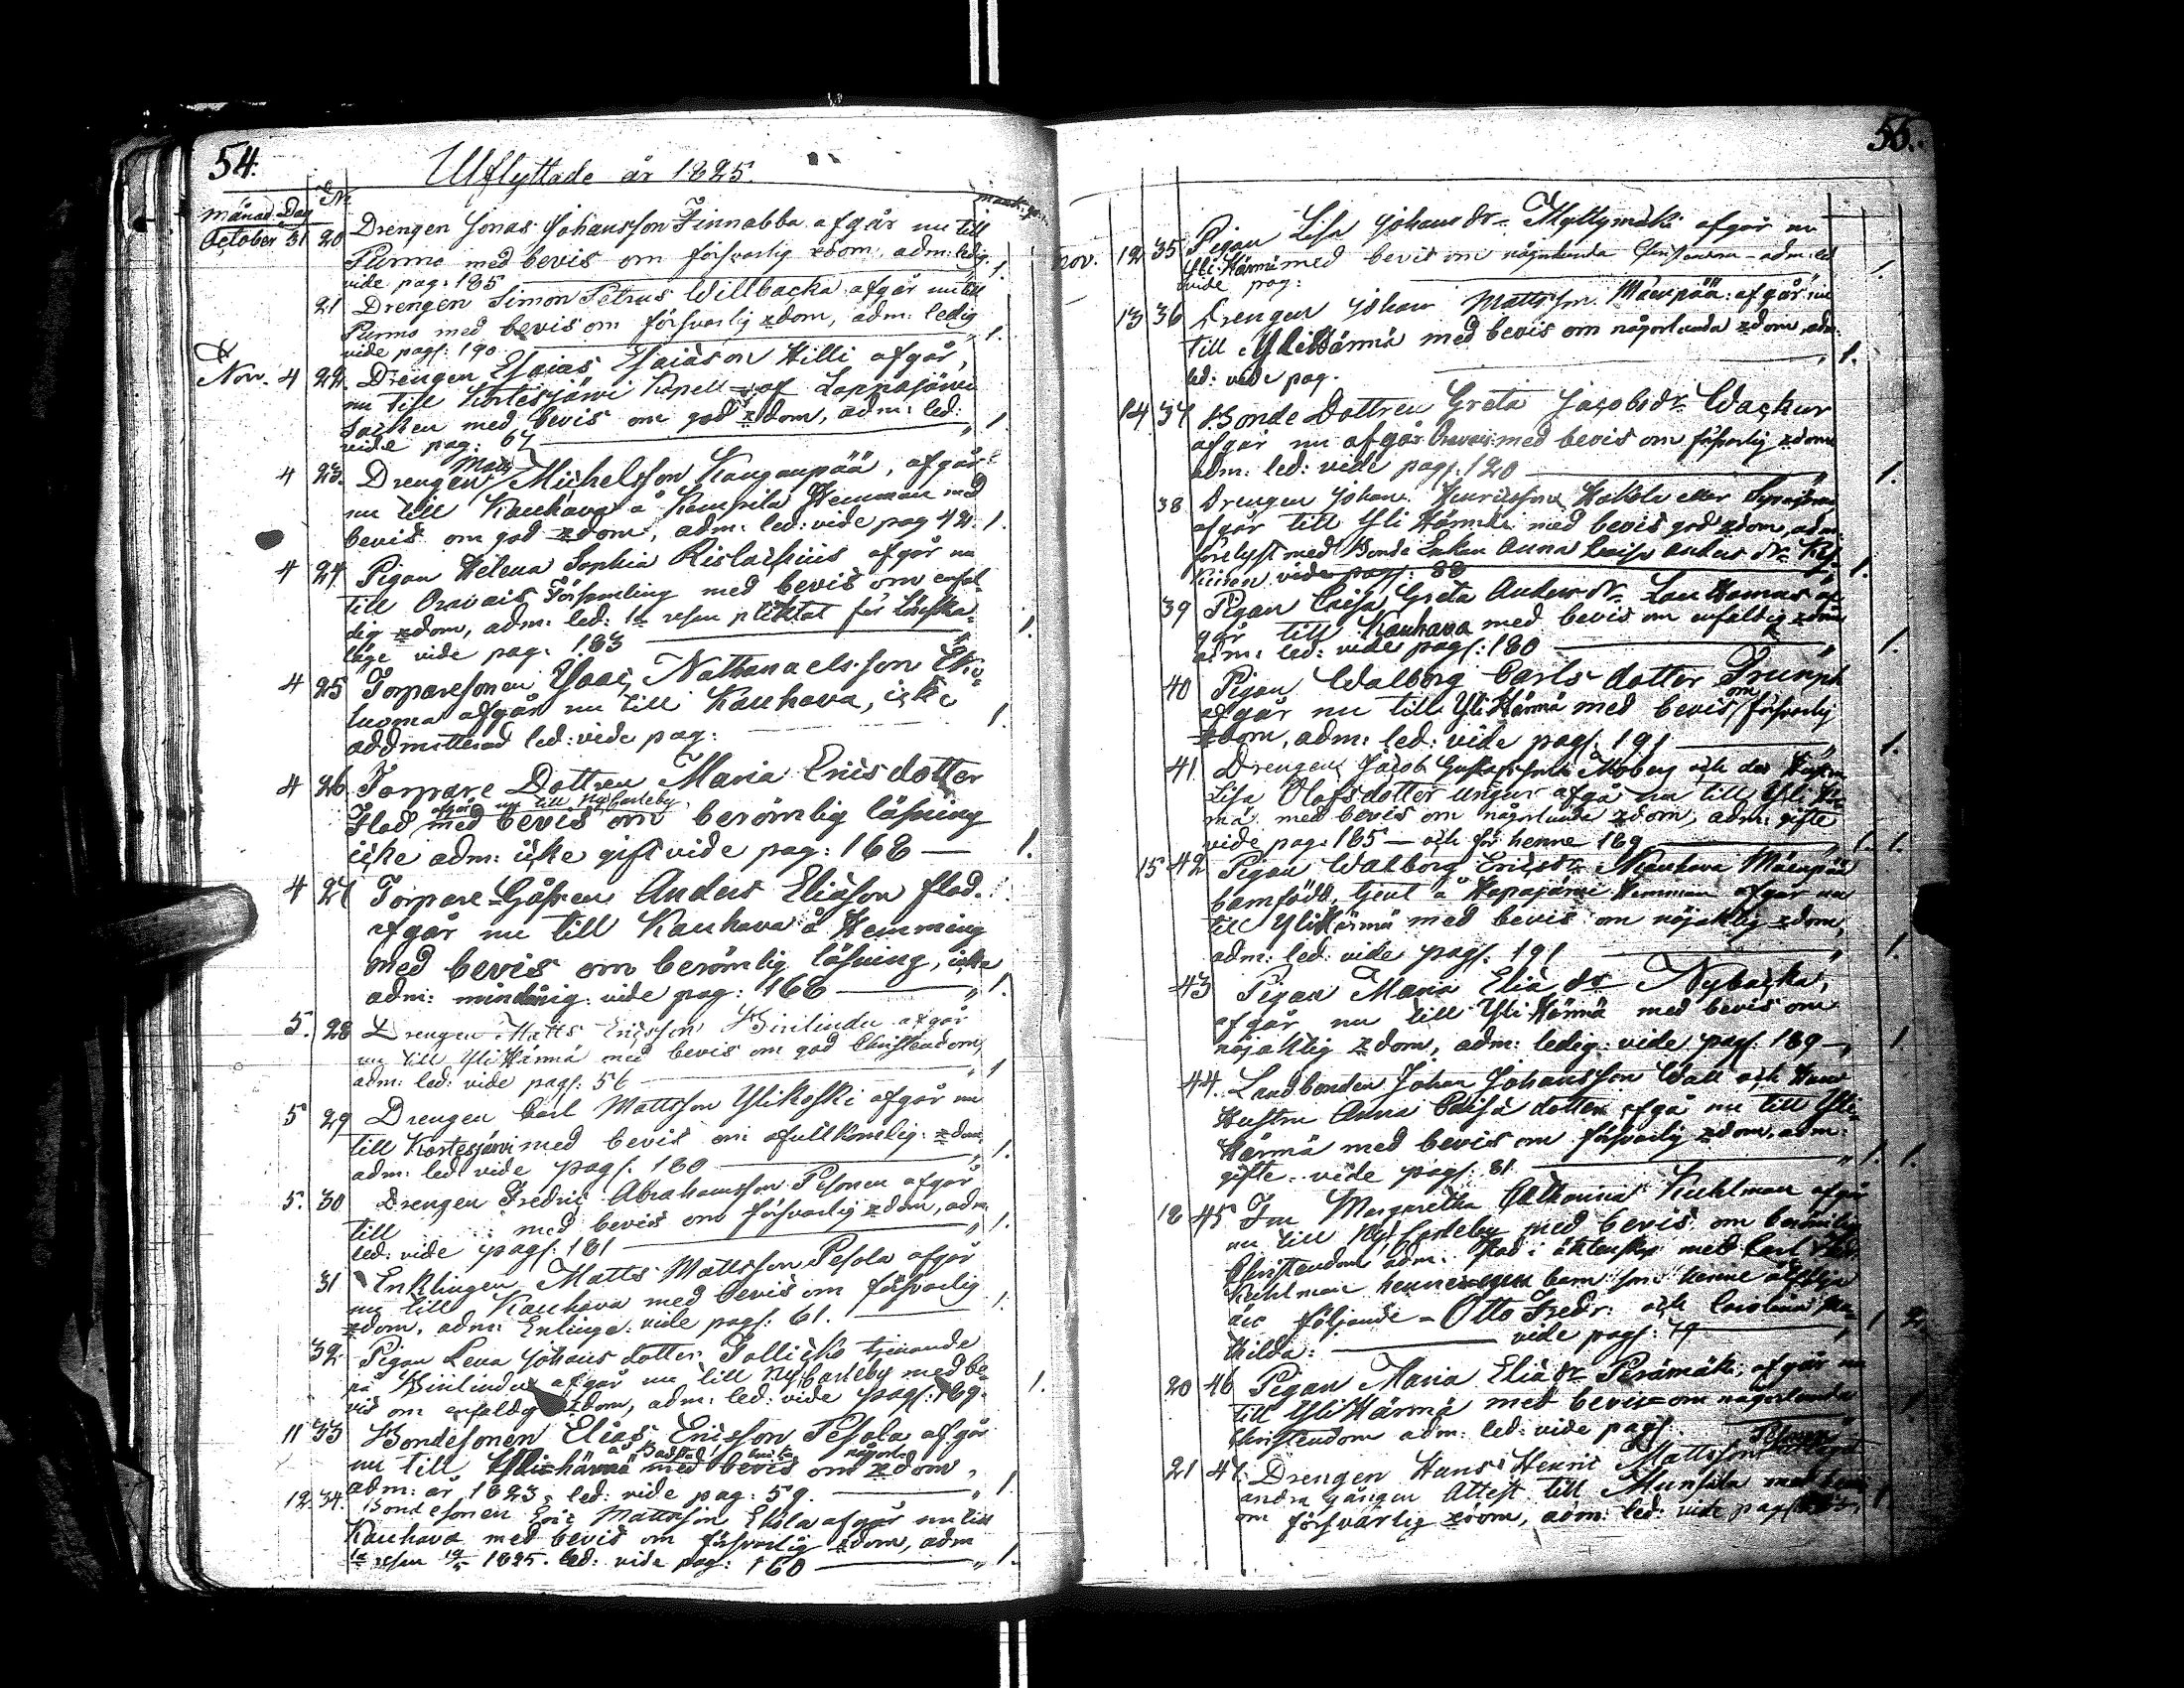 54.
Utflyttade år 1825.
Månad Dag No
October 31 20 Drengen Jonas Johansson Finnabba afgår nu till
Purmo med bevis om försvarlig xdom, adm: ledig
vide pag: 185 1.
21 Drengen Simon Petrus Willbacka afgår nu till
Purmo med bevis om försvarlig xdom, adm: ledig
vide pag: 190 1.
Nov. 4 22. Drengen Esaias Esaiason Hilli afgår,
nu till Kortesjärvi Kapell af Lappajärvi
Socken med bevis om god xdom, adm: led:
vide pag: 67 1
4 23. Drengen Matts Michelsson Kanganpää, afgår
nu till Kauhava å Hemman med
bevis om god xdom, adm: led: vide pag 42. 1.
4 24 Pigan Helena Sophia afgår nu
till Oravais Församling med bevis om enfal-
dig xdom, adm: led: 1a resan pliktat för Löneska-
läge vide pag: 183 1.
4 25 Torparesonen Isaac Nathanaelsson
luoma afgår nu till Kauhava, icke
addmitterad led: vide pag: 1.
4 26 Torpare Dottren Maria Ericsdotter
afgår nu till NyCarleby
Flod med bevis om berömlig läsning
icke adm: icke gift vide pag: 168 — 1.
4 27 Torpare-Gåssen Anders Eliason flod.
afgår nu till Kauhava å Hemming
med bevis om berömlig läsning, icke
adm: minderårig: vide pag: 168 1.
5. 28 Drengen Matts Ericsson afgår
nu till Yli Härmä med bevis om god Christendom,
adm: led: vide pag: 56 1
5 29 Drengen Carl Mattsson Ylikoski afgår nu
till Kortesjärvi med bevis om ofullkomlig xdom
adm: led: vide pag: 180 1.
5. 30 Drengen Fredric Abrahamsson Pesonen afgår
till med bevis om försvarlig xdom, adm.
led: vide pag: 181 1.
31 Enklingen Matts Mattsson Pesola afgår
nu till Kauhava med bevis om försvarlig
xdom, adm: Enlinge: vide pag: 61. 1.
32 Pigan Lena Johans dotter tjenande
på afgår nu till NyCarleby med be-
vis om enfaldig xdom, adm: led: vide pag: 169. 1.
11 33 Bondesonen Elias Ericsson Pesola afgår
nu till Yli-härmä med bevis om xdom,
adm: år 1823, led: vide pag: 59. 1
12. 34. Bondesonen Eric Mattsson Ekola afgår nu till
Kauhava med bevis om försvarlig xdom, adm
1a resan 1825. led: vide pag: 160 1.
55.
Nov. 12 35 Pigan Lisa Johans dr. Myllymäki afgår nu
Yli-Härmä med bevis om någorlunda Christendom - adm: led
vide pag: 1.
13 36 Drengen Johan Mattsson Mäenpää: afgår nu
till YliHärmä med bevis om någorlunda xdom adm:
led: vide pag. 1.
14 37 Bonde Dottren Greta Jacobsdr Wackur
afgår nu afgår Oravais med bevis om försvarlig xdom
adm: led: vide pag: 120 1.
38 Drengen Johan Henricsson Hakola eller
afgår till Yli Härmä med bevis god xdom, adm.
förelyst med Bonde Enkan Anna Caisa Anders dr.
vide pag: 88 1.
39 Pigan Caisa Greta Anders dr. af-
går till Kauhava med bevis om enfaldig xdom
adm: led: vide pag: 180 1.
40 Pigan Walborg Carls dotter Trumph
afgår nu till Yli Härmä med bevis om försvarlig
xdom, adm: led: vide pag: 191 1.
41. Drengen Jacob Gustafsson Moberg och des Hustru
Lisa Olofsdotter Ungur afgå nu till Yli Här-
mä med bevis om någorlunda xdom, adm: gifte
vide pag: 165 — och för henne 169 1. 1.
15 42 Pigan Walborg Ericsdr. Kauhava Mäenpää
barnfödd, tjent å Hapajärvi Hemman afgår nu
till YliHärmä med bevis om nöjaktig xdom,
adm: led: vide pag: 191 1.
43 Pigan Maria Elia dr Nybacka,
afgår nu till Yli Härmä med bevis om
nöjaktig xdom, adm: ledig: vide pag: 189 1.
44. Landbonden Johan Johansson Wall och Hans
Hustru Anna Caisa dotter afgå nu till Yli-
Härmä med bevis om försvarlig xdom, adm:
gifte. vide pag: 81 1. 1.
18 45 Fru Margaretha Catharina Kuhlman afgår
nu till Ny Carleby med bevis om berömlig
Christendom adm: stad i äktenskap med Carl
Kuhlman hennes egna barn som henne åtfölja
äro följande - Otto Fredr: och Carolina Ma-
thilda: vide pag: 79 1 2.
20 46 Pigan Maria Elia dr. Perämäki, afgår nu
till Yli Härmä med bevis om någorlunda
Christendom adm: led: vide pag: 1.
21 47. Drengen Hans Henric Mattsson
andra gången Attest till Munsala med
om försvarlig xdom, adm: led: vide pag: 1.